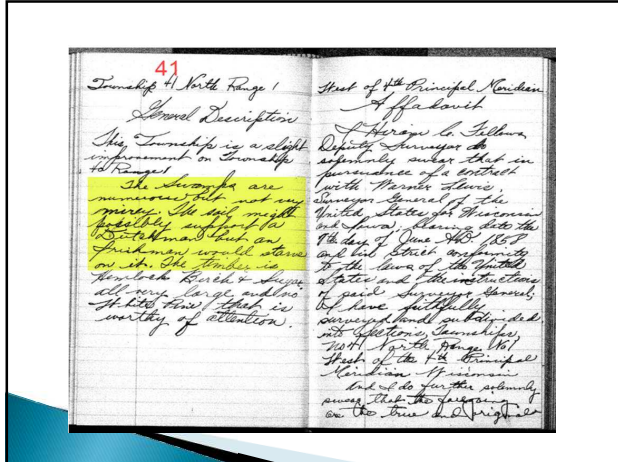 41
Township 41 North Range 1
General Description
This Township is a slight
improvement on Township
40 Range 1
The Swamps are
numerous but not very
mirey. The soil might
possibly support a
Dutchman but an
Irishman would starve
on it. The timber is
Hemlock Birch & Sugar
all very large and no
White Pine that is
worthy of attention.
West of 4th Principal Meridian
Affadavit
I Hiram C. Fellows
Deputy Surveyor do
solemnly swear that in
pursuance of a contract
with Warner Lewis,
Surveyor General of the
United States for Wisconsin
and Iowa, bearing date the
day of June AD. 1858
and in Strict conformity
to the laws of the United
States and the instructions
of said Surveyor General,
I have faithfully
surveyed and subdivided
into Sections, Townships,
No 41 North Range No 1
West of the 4th Principal
Meridian Wisconsin
And I do further solemnly
swear that the foregoing
are the true and original